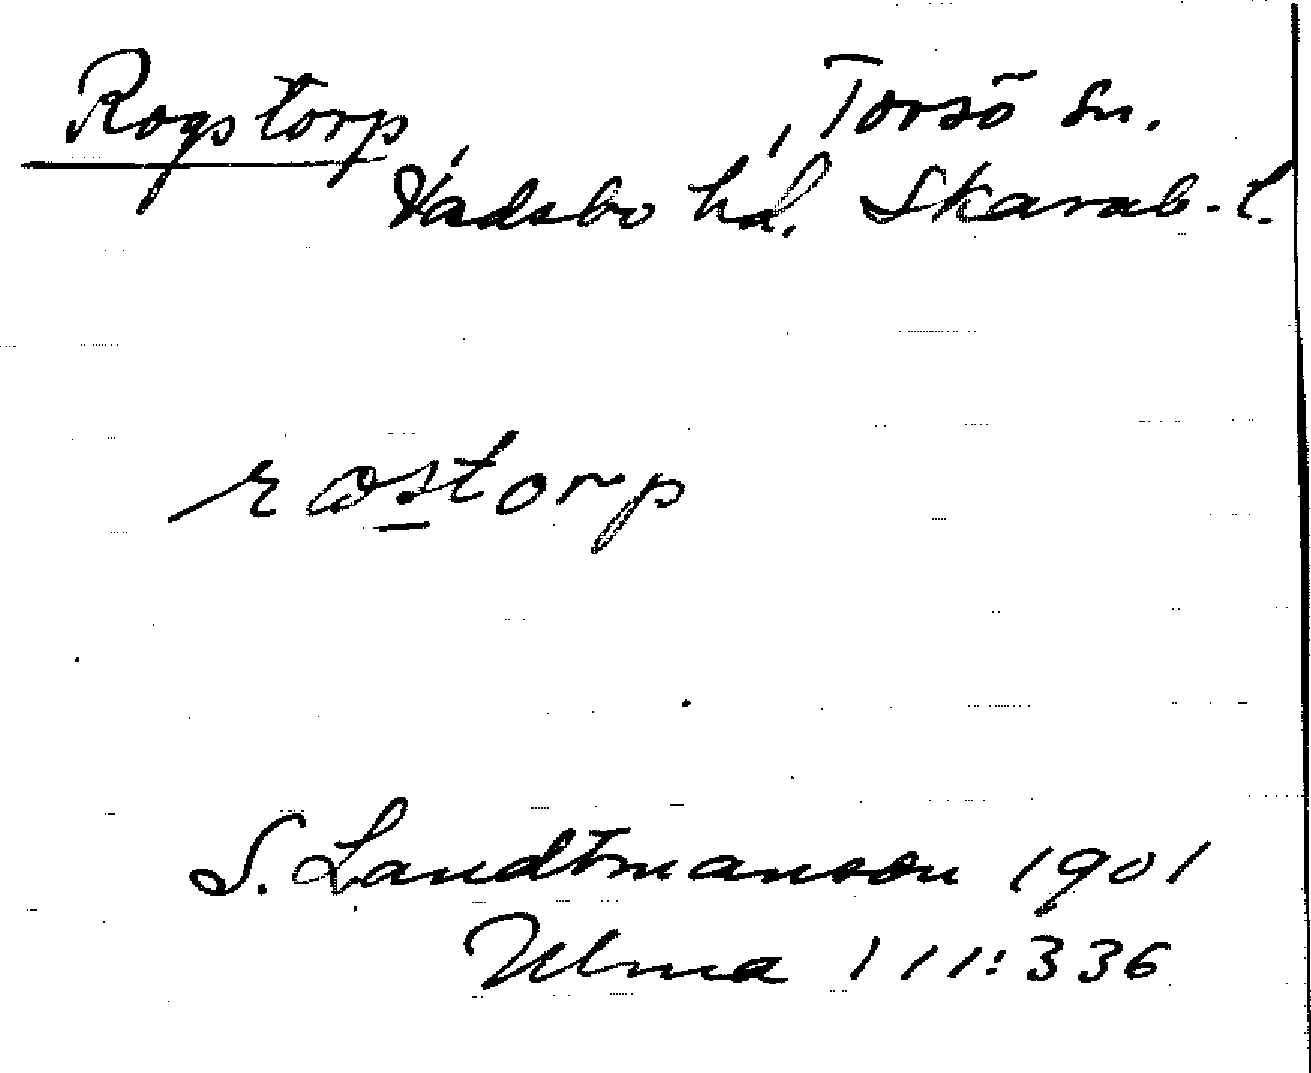 Rogstorp, Torsö sn.
Vadsbo hd. Skarab. l.
rostorp
S. Landtmanson 1901
Ulma 111:336